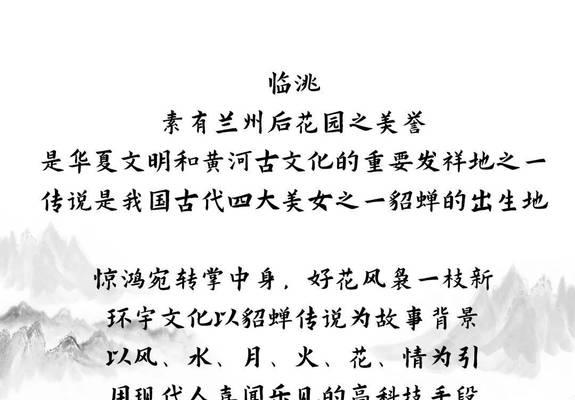 临洮
素有兰州后花园之美誉
是华夏文明和黄河古文化的重要发祥地之一
传说是我国古代四大美女之一貂蝉的出生地
惊鸿宛转掌中身，好花风袅一枝新
环宇文化以貂蝉传说为故事背景
以风、水、月、火、花、情为引
用现代人喜闻乐见的高科技手段